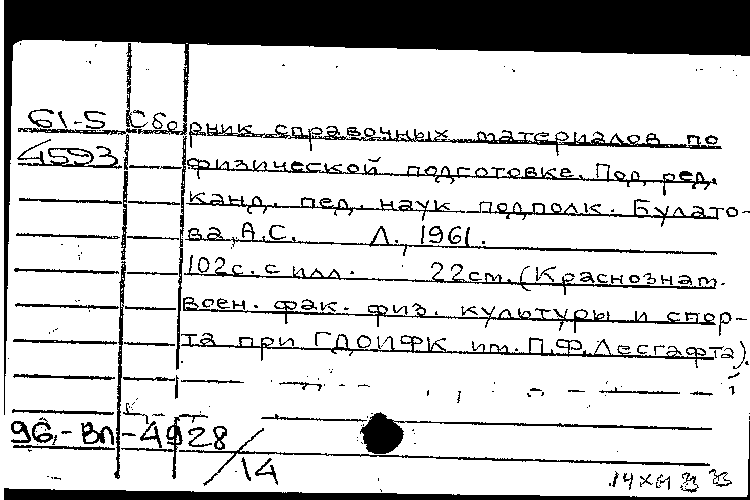 61-5 Сборник справочных материалов по
4593 физической подготовке. Под ред.
канд. пед. наук подполк. Булато-
ва, А.С. Л., 1961.
102с. с илл. 22см. (Краснознам.
воен. фак. физ. культуры и спор-
та при ГДОИФК им. П.Ф. Лесгафта).
96-Вл-4928
/14